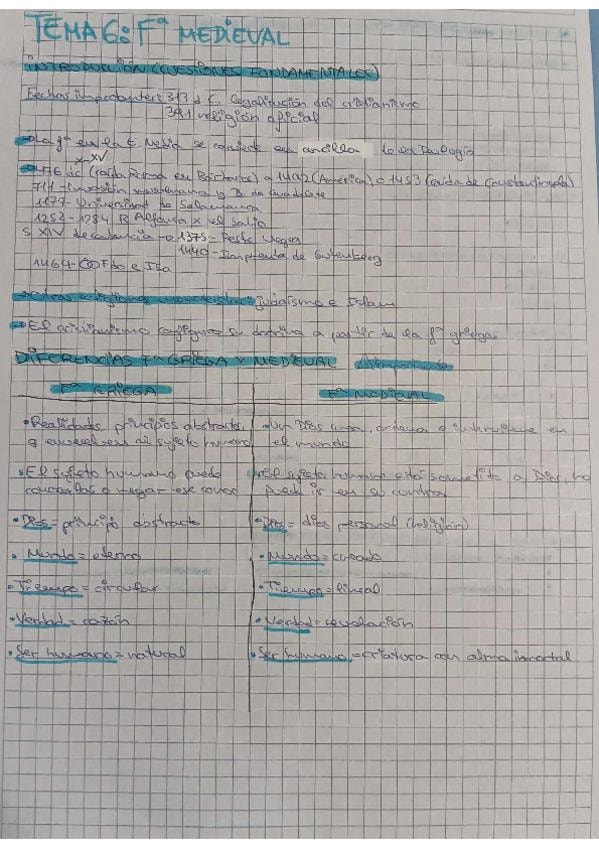 TEMA 6: Fª MEDIEVAL
INTRODUCCIÓN (CUESTIONES FUNDAMENTALES)
Fechas importantes: 313 d.C. legalización del cristianismo
391 religión oficial
La fª en la E. Media se convierte en ancilla de la Teología
V-XV
476 dC (cae Roma en Bárbaros) a 1492 (América) o 1453 (caída de Constantinopla)
711 - Invasión musulmana y B. de Guadalete
1179 - Universidad de Salamanca
1252 - 1284 R Alfonso X el Sabio
S XIV decadencia 1375 = Peste Negra
1440 - Imprenta de Gutenberg
1464 - Fdo e Isa
Otras religiones monoteístas: judaísmo e Islam
El cristianismo configura su doctrina a partir de la fª griega.
DIFERENCIAS Fª GRIEGA Y MEDIEVAL
Fª GRIEGA
Fª MEDIEVAL
• Realidades, principios abstractos, q envuelven al sujeto humano
• Un Dios crea, ordena e interviene en el mundo
• El sujeto humano puede conocerlas o negar ese
• El sujeto humano está sometido a Dios, no puede ir en su contra
• Dios = principio abstracto
• Dios = dios personal (religión)
• Mundo = eterno
• Mundo = creado
• Tiempo = circular
• Tiempo = lineal
• Verdad = razón
• Verdad = revelación
• Ser humano = natural
• Ser humano = criatura con alma inmortal